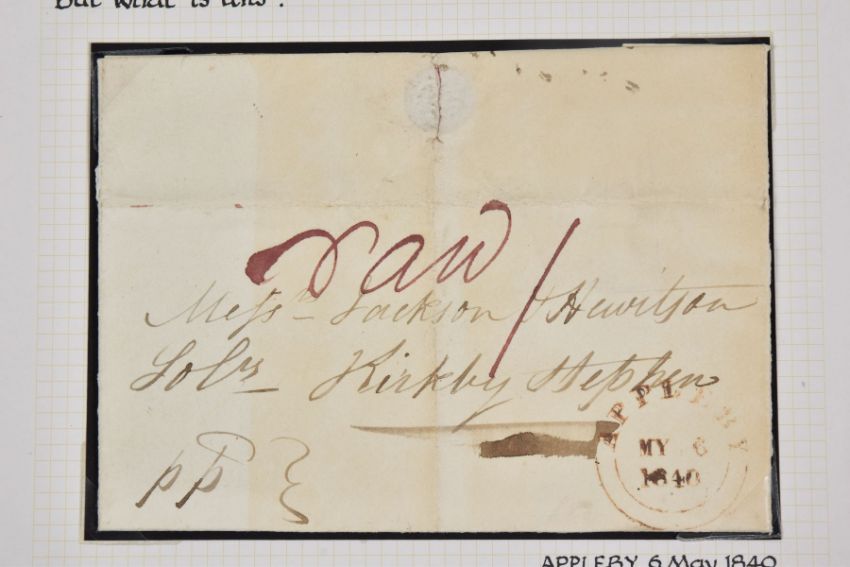 But what is this?
Paid /
Messrs Jackson & Hewitson
Solrs Kirkby Stephen
pp
APPLEBY
MY 6
1840
APPLEBY 6 May 1840